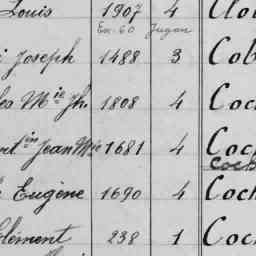 Louis 1907 4 Clo
En. 60 Jugan
i Joseph 1488 3 Cob
es Mie Jh 1808 4 Coc
nt in Jean Mie 1681 4 Coc
Coch
Eugène 1690 4 Coch
Clément 238 1 Coc